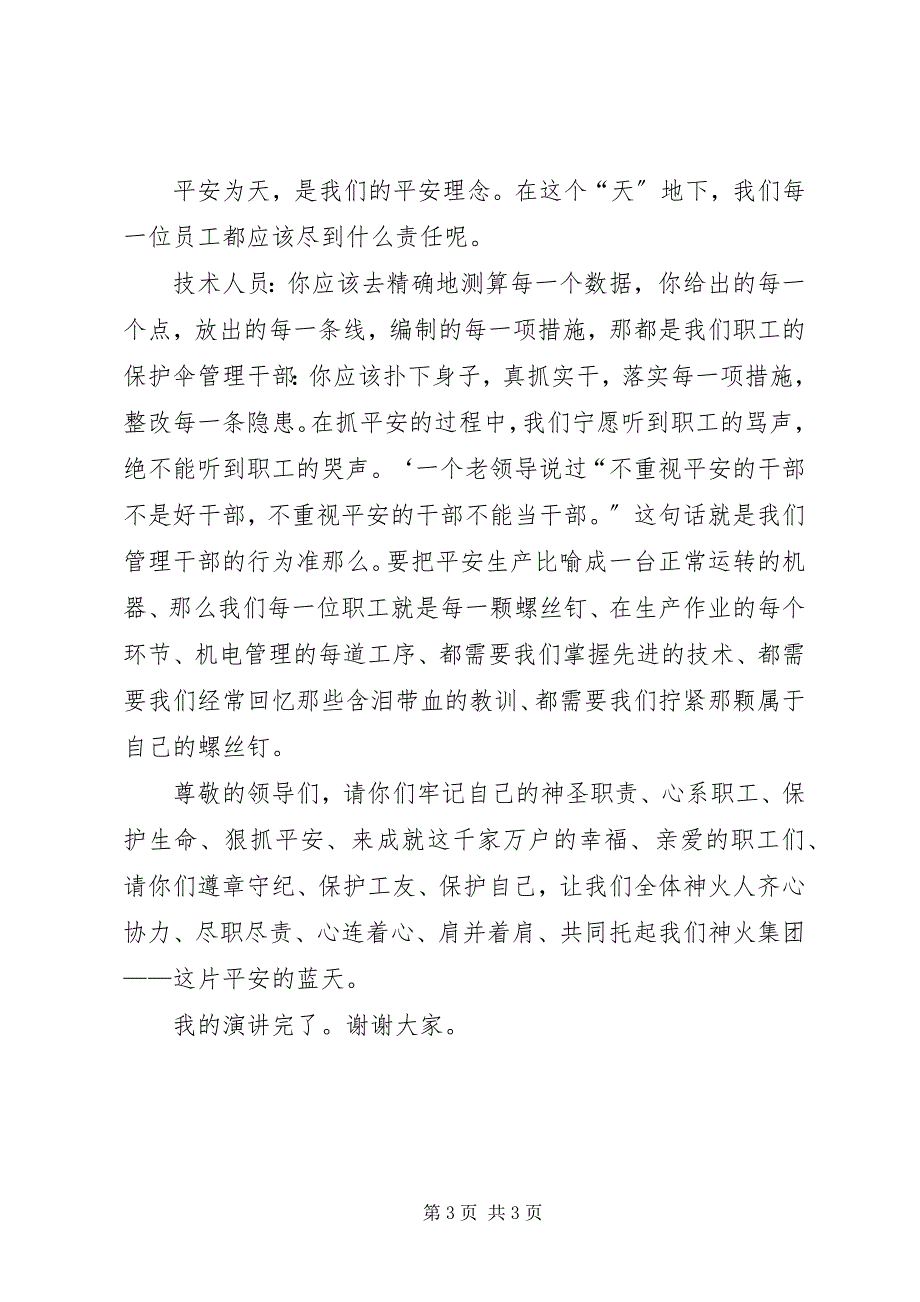 平安为天，是我们的平安理念。在这个“天〞地下，我们每
一位员工都应该尽到什么责任呢。
技术人员：你应该去精确地测算每一个数据，你给出的每一
个点，放出的每一条线，编制的每一项措施，那都是我们职工的
保护伞管理干部：你应该扑下身子，真抓实干，落实每一项措施，
整改每一条隐患。在抓平安的过程中，我们宁愿听到职工的骂声，
绝不能听到职工的哭声。‘一个老领导说过“不重视平安的干部
不是好干部，不重视平安的干部不能当干部。〞这句话就是我们
管理干部的行为准那么。要把平安生产比喻成一台正常运转的机
器、那么我们每一位职工就是每一颗螺丝钉、在生产作业的每个
环节、机电管理的每道工序、都需要我们掌握先进的技术、都需
要我们经常回忆那些含泪带血的教训、都需要我们拧紧那颗属于
自己的螺丝钉。
尊敬的领导们，请你们牢记自己的神圣职责、心系职工、保
护生命、狠抓平安、来成就这千家万户的幸福、亲爱的职工们、
请你们遵章守纪、保护工友、保护自己，让我们全体神火人齐心
协力、尽职尽责、心连着心、肩并着肩、共同托起我们神火集团
——这片平安的蓝天。
我的演讲完了。谢谢大家。
第 3 页 共 3 页